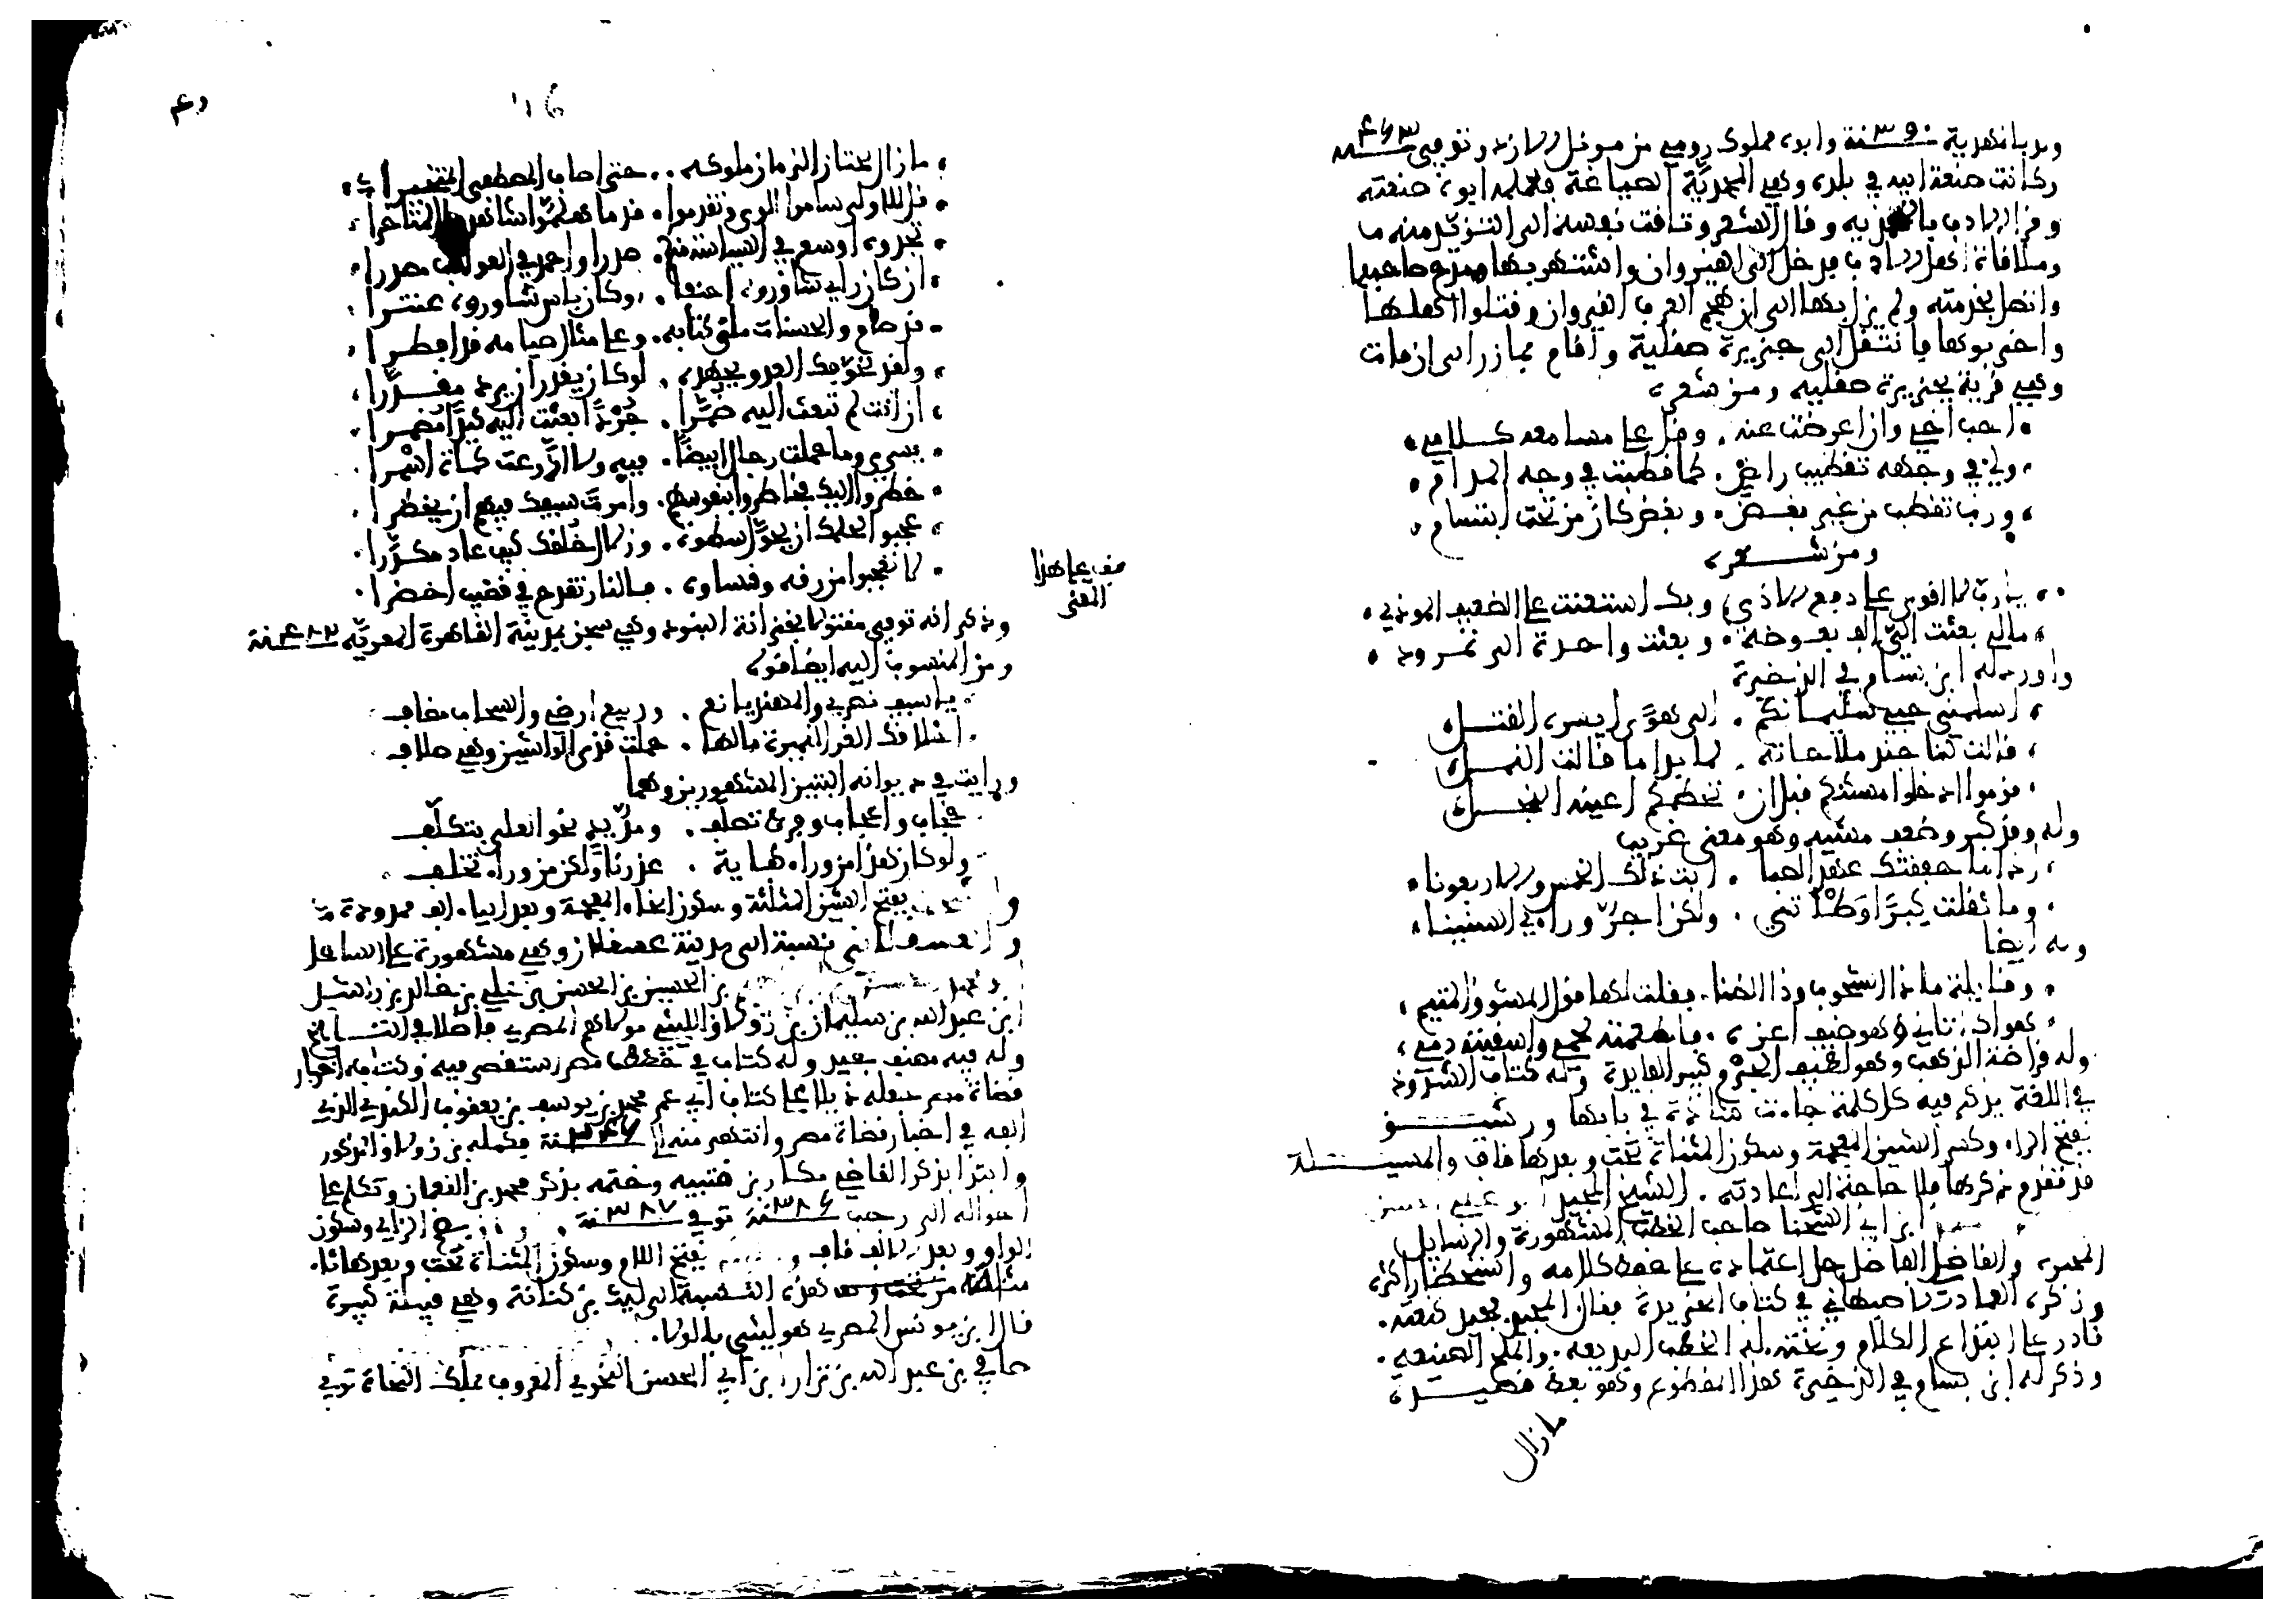 ولد بالمهدية سنة 390 وابوه مملوك رومي من موالي الازد وتوفي سنة 463
وكانت صنعة ابيه في بلده وهي المحمديّة الصياغة فعلمه ابوه صنعته
وقرا الادب بالمحمديه وقال الشعر وتاقت نفسه الى التزيد منه
وملاقاة اهل الادب فرحل الى القيروان واشتهر بها ومدح صاحبها
واتصل بخدمته ولم يزل بها الى ان هجم العرب القيروان وقتلوا اهلها
واخربوها فانتقل الى جزيرة صقلية واقام بمازر الى ان مات
وهي قرية بجزيرة صقليه ومن شعره
احب اخي وان اعرضت عنه . وقل على مسامعه كلامي
ولي في وجهه تقطيب راض . كما قطبت في وجه المدام
ورب تقطب من غير بغض . وبغض كان من تحت ابتسام
ومن شعره
يا رب لا اقوى على دفع الاذى وبك استعنت على الضعيف الموذي
مالي بعثت الي الف بعوضة . وبعثت واحدة الى نمرود
واورد له ابن بسام في الذخيرة
اسلمني حب سليمانكم . الى هوًى ايسره القتل
قالت لنا جند ملاحاته . لما بدا ما قالت النمل
قوموا ادخلوا مسكنكم قبل ان . تحطمكم اعينه النجل
وله وقد كبر وضعف مشيه وهو معنى غريب
اذا ما خففت كعهد الصبا . ابت ذلك الخمس والاربعونا
وما ثقلت كبرًا وطأتي . ولكن اجرّ وراءي السنينا
وله ايضا
وقائلة ماذا الشحوب وذا الضنا . فقلت لها قول المشوق المتيم
هواك اتاني وهو ضيف اعزه . فاطعمته لحمي واسقيته دمي
وله قراضة الذهب وهو لطيف الجرم كبير الفايدة وله كتاب الشذوذ
في اللغة يذكر فيه كل كلمة جاءت شاذة في بابها ورشيق
بفتح الراء وكسر الشين المعجمة وسكون المثناة تحت وبعدها قاف والمسيلة
قد تقدم ذكرها فلا حاجة الى اعادته . الشيخ المجيد ابو علي حسن
ابن ابي الشخنا صاحب الخطب المشهورة والرسايل
المحبرة والقاضي الفاضل جل اعتماده على حفظ كلامه واستحضار اكثره
وذكره العماد الاصبهاني في كتاب الخريدة فقال المجيد مجيد كنعته
قادر على ابتداع الكلام ونحته له الخطب البديعة . والملح الصنيعة
وذكر له ابن بسام في الذخيرة هذا المقطوع وهو بعض قصيدة
مازال
ما زال يختار الزمان ملوكه . حتى اصاب المصطفى المتخيرا
قل للاولى ساسوا الورى وتقدموا . قدما هلموا شاهدوا المتاخرا
تجدوه اوسع في السياسة منكم . صدرا واحمد في العواقب مصدرا
ان كان راي شاوروه احنفا . او كان باس شاوروه عنترا
قد صام والحسنات ملئ كتابه . وعلى مثال صيامه قد افطرا
ولقد تخوفك العدو بجهده . لو كان يقدر ان يرد مقدّرا
ان انت لم تبعث اليه ضمّرا . جُردًا بعثت اليه كيدًا مُضمرا
يسري وما حملت رجال ابيضا . فيه ولا ادّرعت كماة اسمرا
خطروا اليك فخاطروا بنفوسهم . وامرتَ سيفك فيهم ان يخطرا
عجبوا لحلمك ان تحوّل سطوة . وزلال خلقك كيف عاد مكدّرا
لا تعجبوا من رقه وقساوه . فالنار تقدح في قضيب اخضرا
قف على هذا
المعنى
وذكر انه توفي مقتولا بخزانة البنود وهي سجن بمدينة القاهرة المعزيّة سنة 482
ومن المنسوب اليه ايضا قوله
يا سيف نصري والمهند يانع . وربيع ارضي والسحاب مصاف
اخلاقك الغر النميرة مالها . حملت قذى الواشين وهي سلاف
ورايت في ديوانه البيتين المشهورين وهما
حجاب واعجاب وفرط تصلف . ومدّ يد نحو العلى بتكلّف
ولو كان هذا من وراء كفاية . عذرنا ولكن من وراء تخلف
بفتح الشين المثلثة وسكون الخاء المعجمة وبعد الياء الف ممدودة
والعسقلاني نسبة الى مدينة عسقلان وهي مشهورة على الساحل
بن الحسين بن الحسن بن علي بن خالد بن راشد
ابن عبد الله بن سليمان بن زولاق الليثي مولاهم المصري فاضلا في التاريخ
وله فيه مصنف جيد وله كتاب في خطط مصر استقصى فيه وكتاب اخبار
قضاة مصر جعله ذيلا على كتاب ابي عمر محمد بن يوسف بن يعقوب الكندي الذي
الفه في اخبار قضاة مصر وانتهى منه الى سنة 246 فكمله بن زولاق المذكور
وابتدا بذكر القاضي بكار بن قتيبه وختمه بذكر محمد بن النعمان وتكلم على
احواله الى رجب سنة 386 توفي سنة 387 . بضم الزاي وسكون
الواو وبعد لام الف قاف بفتح اللام وسكون المثناة تحت وبعدها ثا
مثلثة هذه النسبة الى ليث بن كنانة وهي قبيلة كبيرة
قال ابن يونس المصري هو ليثي بالولاء
صافي بن عبد الله بن نزار بن ابي الحسن النحوي المعروف بملك النحاة توفي